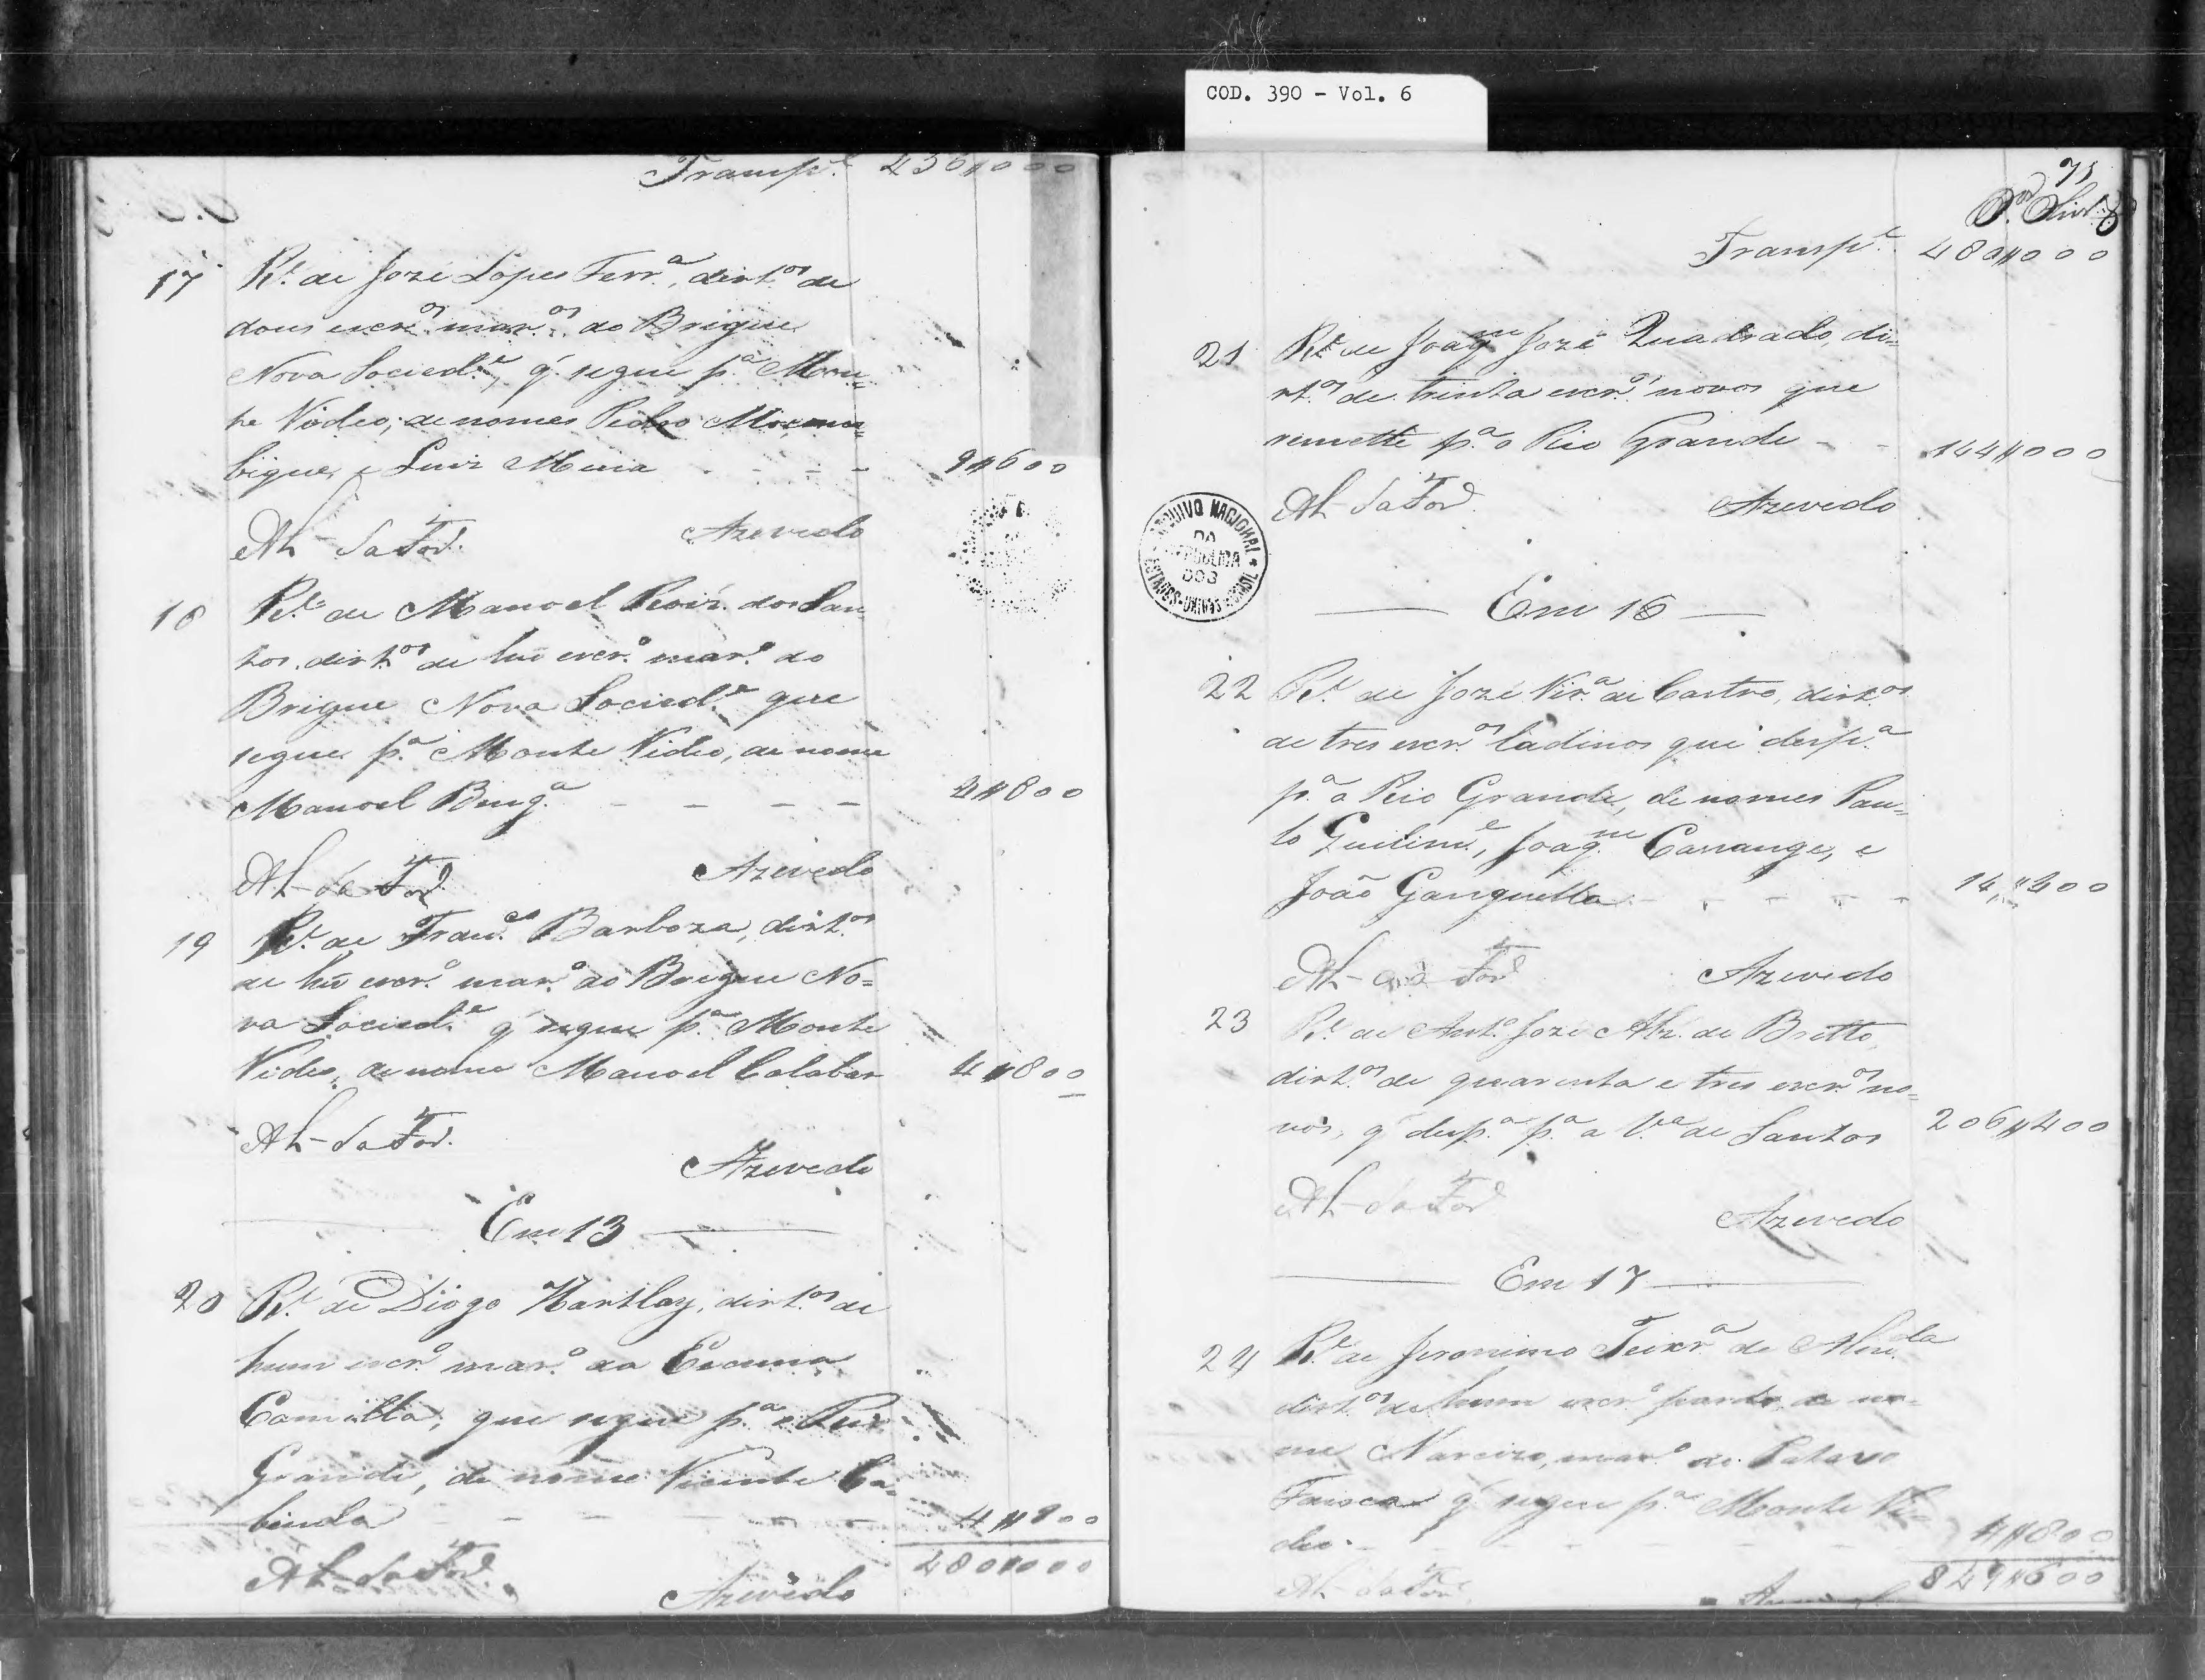 COD. 390 - Vol. 6
Transp.e 456$000
17 R.e de José Lopes Ferr.a, dirt.os de
dous escr.os mar.os do Brigue
Nova Socied.e, q' segue p.a Mon-
te Video, de nomes Pedro Mosam-
bique, e Luiz Mina - - - 9$600
Azevedo
18 R.e de Manoel Roiz. dos San-
tos, dirt.os de hũ escr.o mar.o do
Brigue Nova Socied.e que
segue p.a Monte Video, de nome
Manoel Beng.a - - - - 4$800
Azevedo
19 R.e de Fran.co Barboza, dirt.os
de hũ escr.o mar.o do Brigue No=
va Socied.e q' segue p.a Monte
Video, de nome Manoel Calabar 4$800
Azevedo
Em 13
20 R.e de Diogo Hartlay, dirt.os de
hum escr.o mar.o da Escuna
Camilla, que segue p.a o Rio
Grande, de nome Vicente Ca-
binda - - - - - 4$800
480$000
Azevedo
75
Transp.e 480$000
21 R.e de Joaq.m José Quadrado, di-
rt.os de trinta escr.os novos que
remette p.a o Rio Grande - - 144$000
Azevedo
ARQUIVO NACIONAL
DA
REPUBLICA
DOS
ESTADOS-UNIDOS BRASIL
Em 16
22 R.e de José Vir.a de Castro, dirt.os
de tres escr.os ladinos que desp.a
p.a o Rio Grande, de nomes Pau-
lo Quilim.e, Joaq.m Cassange, e
João Ganguella - - - - - 14$400
Azevedo
23 R.e de Ant.o José Alz. de Britto,
dirt.os de quarenta e tres escr.os no-
vos, q' desp.a p.a a V.a de Santos 206$400
Azevedo
Em 17
24 R.e de Jeronimo Teixr.a de Alm.da
dirt.os de hum escr.o pardo de no-
me Narcizo, mar.o
q' segue p.a Monte Vi-
deo - - - - - - 4$800
849$600